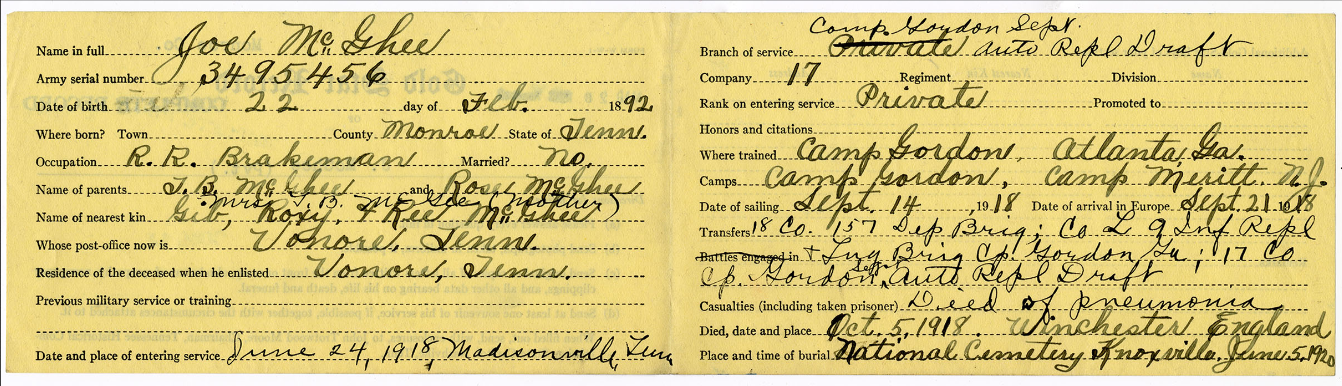 Name in full Joe McGhee
Army serial number 3495456
Date of birth 22 day of Feb. 1892
Where born? Town County Monroe State of Tenn.
Occupation R. R. Brakeman Married? no.
Name of parents J. B. McGhee and Rose McGhee
Mrs. J. B. McGee (mother)
Name of nearest kin Geo, Roxy, & Kee McGhee
Whose post-office now is Vonore, Tenn.
Residence of the deceased when he enlisted Vonore, Tenn.
Previous military service or training
Date and place of entering service June 24, 1918, Madisonville, Tenn
Camp Gordon Sept.
Branch of service Private Auto Repl Draft
Company 17 Regiment Division
Rank on entering service Private Promoted to
Honors and citations
Where trained Camp Gordon, Atlanta, Ga.
Camps Camp Gordon, Camp Meritt, N.J.
Date of sailing Sept. 14, 1918 Date of arrival in Europe Sept. 21 1918
Transfers 18 Co. 157 Dep Brig; Co L 9 Inf Repl
Battles engaged in & Tng Brig Cp. Gordon Ga; 17 Co
Cp. Gordon Sept. Auto Repl Draft
Casualties (including taken prisoner) Died of pneumonia
Died, date and place Oct. 5, 1918. Winchester England
Place and time of burial National Cemetery Knoxville, June 5, 1920